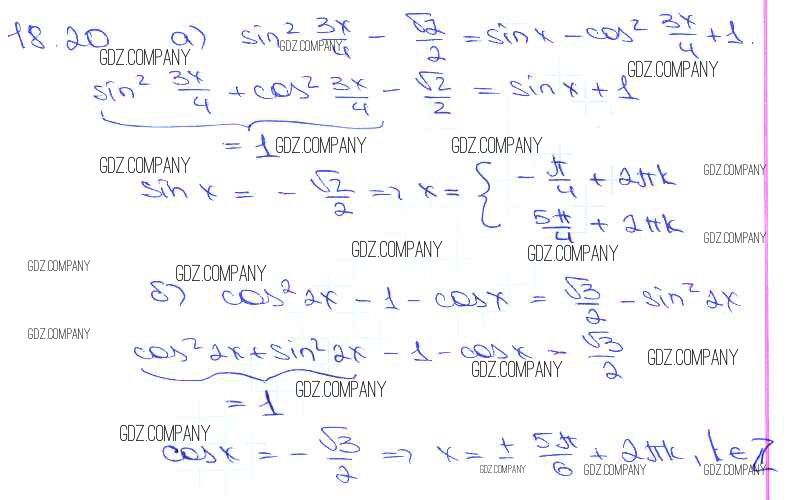 18.20 а) sin² 3x/4 − √2/2 = sin x − cos² 3x/4 + 1.
GDZ.COMPANY GDZ.COMPANY GDZ.COMPANY
sin² 3x/4 + cos² 3x/4 − √2/2 = sin x + 1
= 1 GDZ.COMPANY GDZ.COMPANY
GDZ.COMPANY GDZ.COMPANY
sin x = − √2/2 => x = { − π/4 + 2πk
5π/4 + 2πk
GDZ.COMPANY GDZ.COMPANY GDZ.COMPANY
GDZ.COMPANY GDZ.COMPANY
б) cos² 2x − 1 − cos x = √3/2 − sin² 2x
GDZ.COMPANY
cos² 2x + sin² 2x − 1 − cos x = √3/2
GDZ.COMPANY GDZ.COMPANY
= 1 GDZ.COMPANY
GDZ.COMPANY
cos x = − √3/2 => x = ± 5π/6 + 2πk, k ∈ Z
GDZ.COMPANY GDZ.COMPANY GDZ.COMPANY